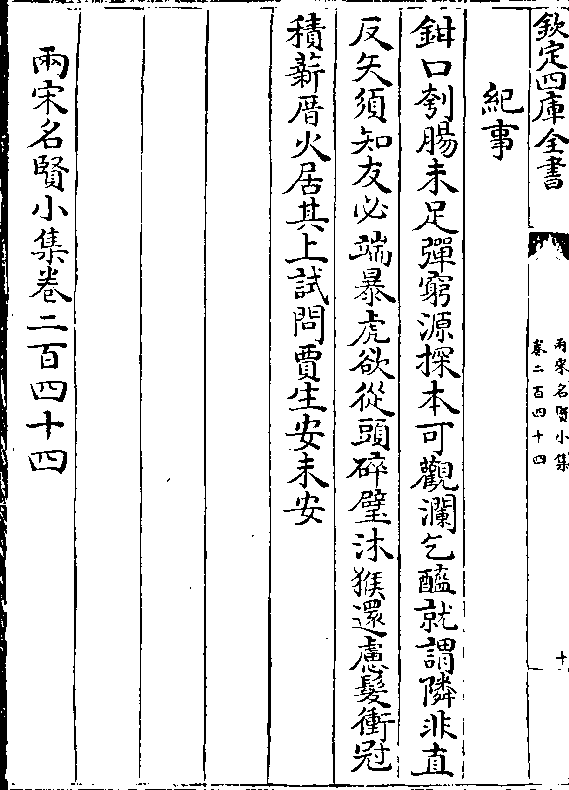 欽定四庫全書
兩宋名賢小集
卷二百四十四
十
紀事
鉗口刳腸未足彈窮源探本可觀瀾乞醯就謂隣非直
反矢須知友必端暴虎欲從頭碎璧沐猴還慮髮衝冠
積薪厝火居其上試問賈生安未安
兩宋名賢小集卷二百四十四